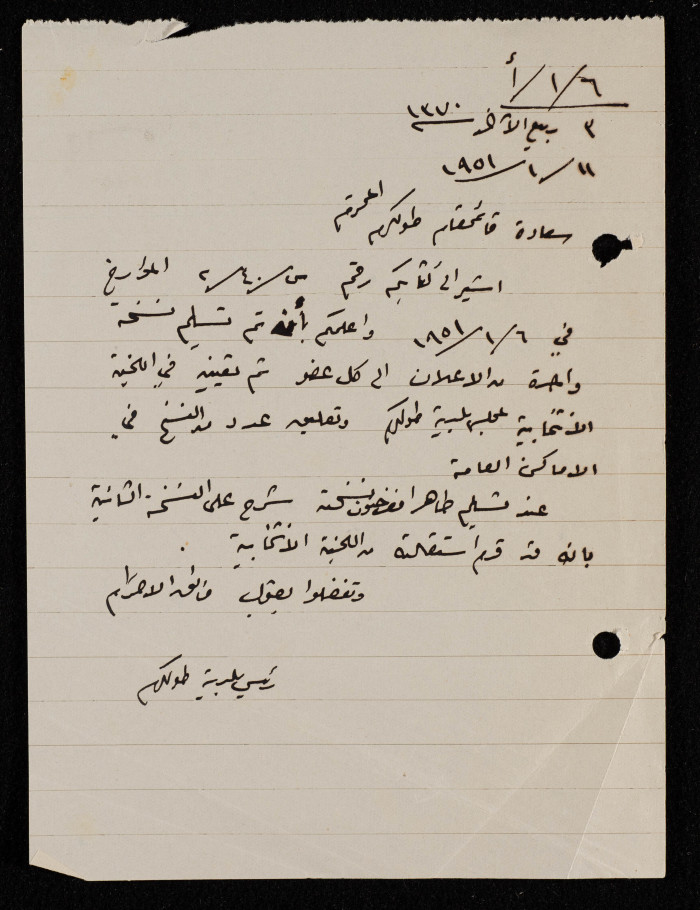 ٦/١/أ
٣ ربيع الآخر ١٣٧٠
١١/١/١٩٥١
سعادة قائمقام طولكرم المحترم
اشير الى كتابكم رقم س/٤٠/٢ المؤرخ
في ٦/١/١٩٥١ واعلمكم بأنه تم تسليم نسخة
واحدة من الاعلان الى كل عضو تم تعيينه في اللجنة
الانتخابية لمجلس بلدية طولكرم وتعليق عدد من النسخ في
الاماكن العامة
عند تسليم طاهر نسخته شرح على النسخة الثانية
بانه قد قدم استقالته من اللجنة الانتخابية .
وتفضلوا بقبول فائق الاحترام
رئيس بلدية طولكرم